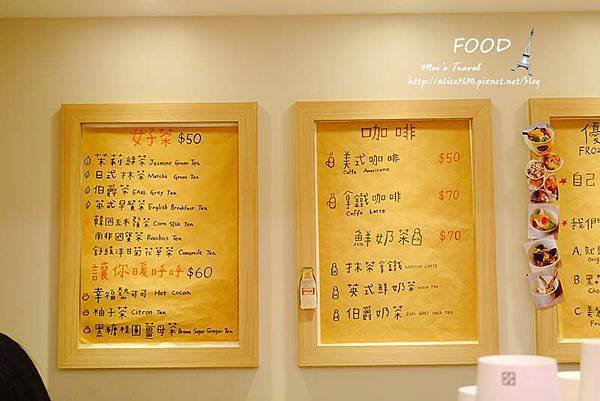 FOOD
Mei's Travel
http://alice3690.pixnet.net/blog
好茶 $50
茉莉綠茶 Jasmine Green Tea
日式抹茶 Matcha Green Tea
伯爵茶 EARL Grey Tea
英式早餐茶 English Breakfast Tea
韓國玉米鬚茶 Corn Silk Tea
南非國寶茶 Rooibos Tea
舒緩洋甘菊花草茶 Camomile Tea
讓你暖呼呼 $60
幸福熱可可 Hot Cocoa
柚子茶 Citron Tea
黑糖桂圓薑母茶 Brown Sugar Ginger Tea
咖啡
美式咖啡 $50
Caffe Americano
拿鐵咖啡 $70
Caffe Latte
鮮奶茶 $70
抹茶拿鐵 MATCHA LATTE
英式鮮奶茶 MILK TEA
伯爵奶茶 EARL GREY MILK TEA
優
FROZ
自己
我們
A. 就是
B. 果
C. 美